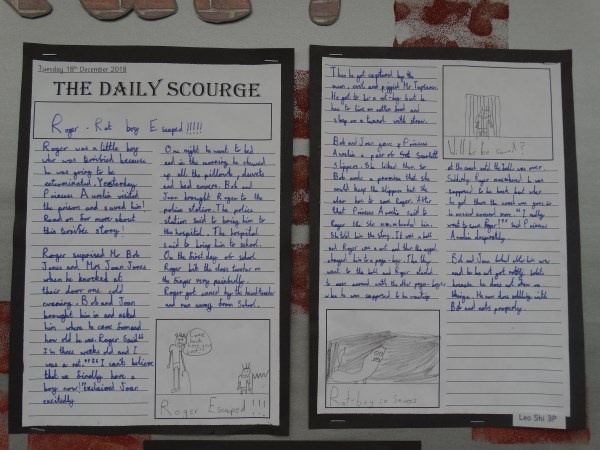 Tuesday 18th December 2018
THE DAILY SCOURGE
Roger - Rat boy Escaped !!!!!
Roger was a little boy
who was terrified because
he was going to be
exterminated. Yesterday,
Princess Aurelia visited
the prison and saved him!
Read on for more about
this terrible story!
Roger surprised Mr Bob
Jones and Mrs Joan Jones
when he knocked at
their door one cold
evening. Bob and Joan
brought him in and asked
him where he came from and
how old he was. Roger said
I'm three weeks old and I
was a rat." "I can't believe
that we finally have a
boy now!" exclaimed Joan
excitedly
One night he went to bed
and in the morning he chewed
up all the pillows, duvets
and bed covers. Bob and
Joan brought Roger to the
police station. The police
station said to bring him to
the hospital. The hospital
said to bring him to school.
On the first day of school
Roger bit the class teacher on
the finger very painfully.
Roger got caned by the head teacher
and ran away from school.
Come back here you
Roger Escaped !!!
Then he got captured by the
mean, and Mr
He got to be a rat-boy but he
has to live on rotten food and
sleep on a tunnel with straw.
Bob and Joan gave Princess
Aurelia a pair of Scarlett
slippers. She liked them so
Bob made a promise that she
could keep the slippers but she
has to save Roger. After
that Princess Aurelia said to
Roger
She told him the story. It was a ball
and Roger was a rat and then the angel
changed him to a page-boy. Then they
went to the ball and Roger
to mess around with the other page-boys
when he was supposed to be
Rat-boy in sewers
Will he be saved?
at the coach until the ball was over.
Suddenly Roger remembered he was
supposed to be back but when
he got there the coach was gone so
he messed around more. "I really
want to save Roger!" said Princess
Aurelia desperately.
Bob and Joan
because he does not chew on
things. He now does nothing with
Bob and eats properly.
Leo Shi 3P